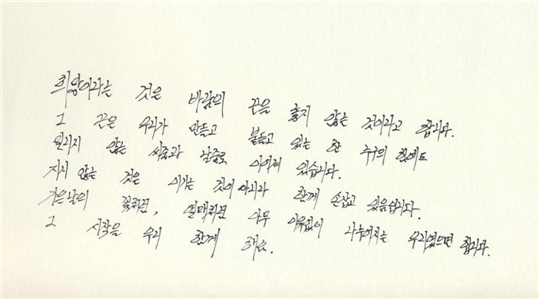 희망이라는 것은 바람의 끈을 놓지 않는 것이라고 합니다.
그 끈은 우리가 만들고 붙들고 있는 한 누구의 힘에도
풀리지 않는 씨줄과 날줄로 이어져 있습니다.
지지 않는 것은 이기는 것이 아니라 함께 손잡고 있음입니다.
가은날의 꽃처럼, 열매처럼 아무 이유없이 나누어지는 우리였으면 합니다.
그 시작을 우리 함께 해요.